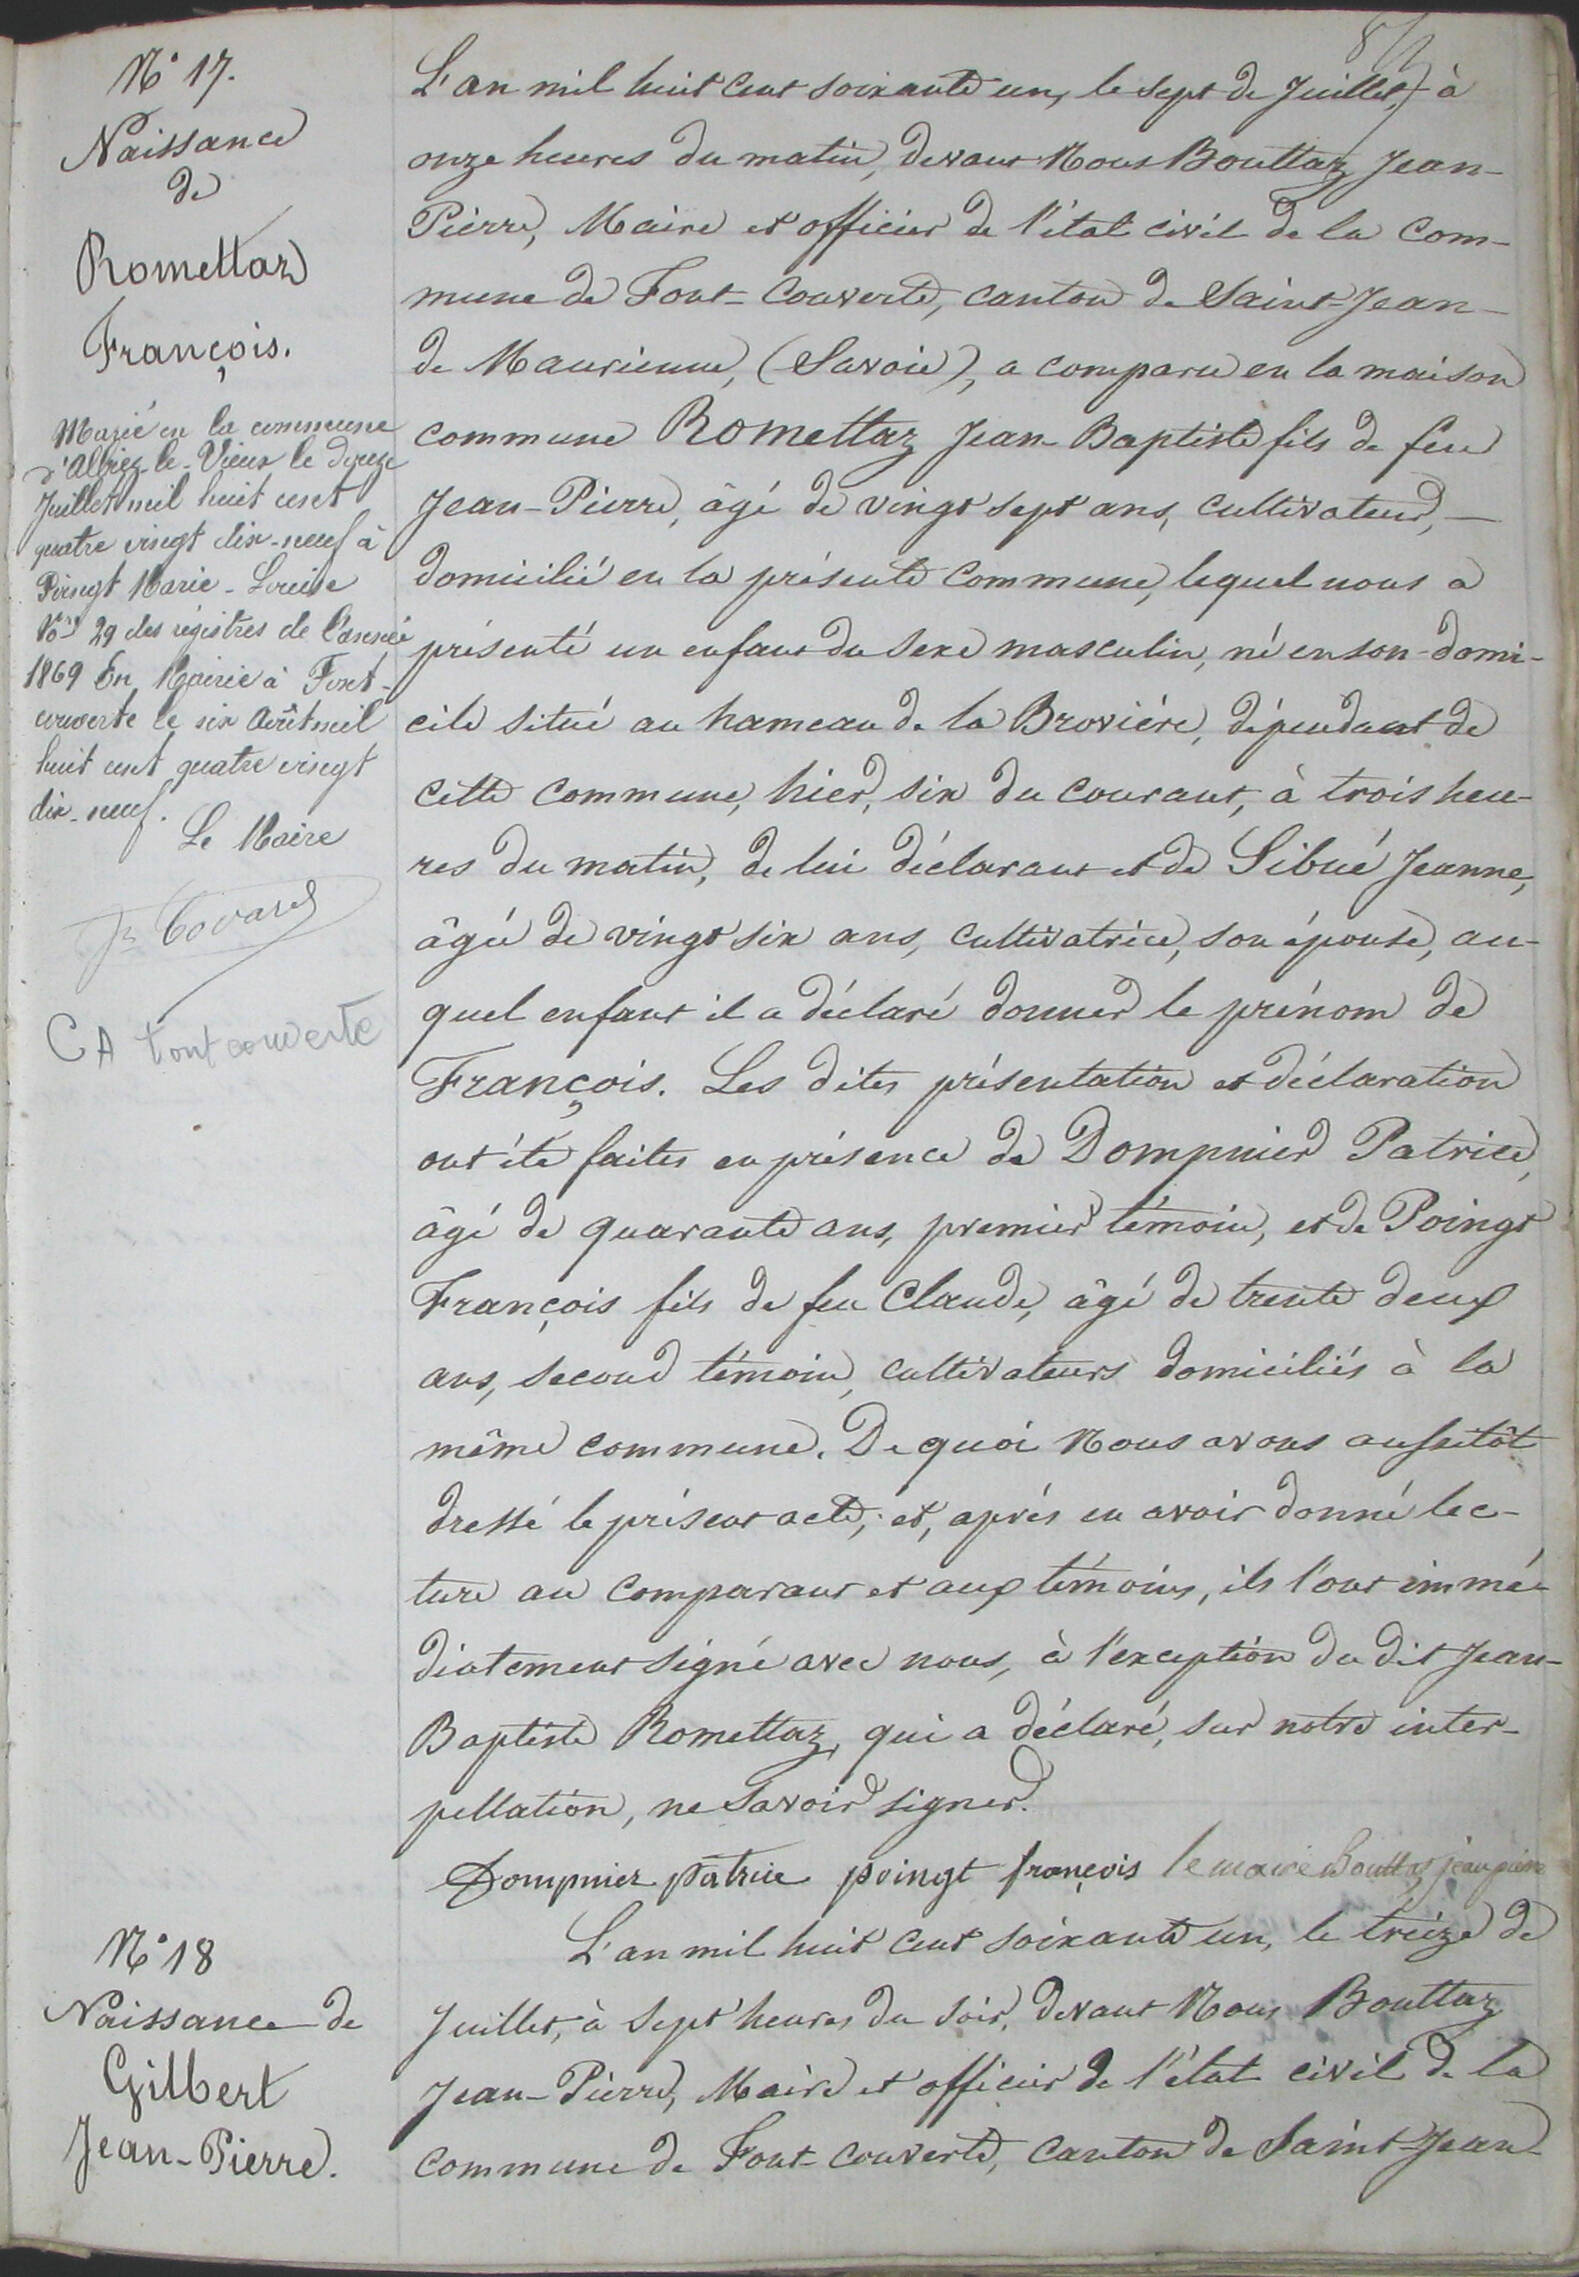 N° 17.
Naissance
de
Romettaz
François.
Marié en la commune
d'Albiez-le-Vieux le douze
Juillet mil huit cent
quatre vingt dix-neuf à
Poingt Marie-Louise
29 des régistres de l'année
1869 En Mairie à Font-
couverte le six Août mil
huit cent quatre vingt
dix-neuf.
Le Maire
CA Fontcouverte
L'an mil huit cent soixante un, le sept de Juillet, à
onze heures du matin, devant Nous Bouttaz Jean-
Pierre, Maire et officier de l'état civil de la Com-
mune de Font-Couverte, canton de Saint-Jean-
de Maurienne, (Savoie), a comparu en la maison
commune Romettaz Jean-Baptiste fils de feu
Jean-Pierre, âgé de vingt sept ans, cultivateur, —
domicilié en la présente commune, lequel nous a
présenté un enfant du sexe masculin, né en son domi-
cile situé au hameau de la Brovière, dépendant de
cette commune, hier, six du courant, à trois heu-
res du matin, de lui déclarant et de Sibué Jeanne,
âgée de vingt six ans, cultivatrice, son épouse, au-
quel enfant il a déclaré donner le prénom de
François. Les dites présentation et déclaration
ont été faites en présence de Dompnier Patrice,
âgé de quarante ans, premier témoin, et de Poingt
François fils de feu Claude, âgé de trente deux
ans, second témoin, cultivateurs domiciliés à la
même commune. De quoi Nous avons aussitôt
dressé le présent acte; et, après en avoir donné lec-
ture au comparant et aux témoins, ils l'ont immé-
diatement signé avec nous, à l'exception du dit Jean-
Baptiste Romettaz, qui a déclaré, sur notre inter-
pellation, ne savoir signer.
Dompnier patrice poingt françois le maire Bouttaz jean pierre
N° 18
Naissance de
Gilbert
Jean-Pierre.
L'an mil huit cent soixante un, le treize de
Juillet, à sept heures du soir, devant Nous Bouttaz
Jean-Pierre, Maire et officier de l'état civil de la
commune de Font-Couverte, Canton de Saint-Jean-